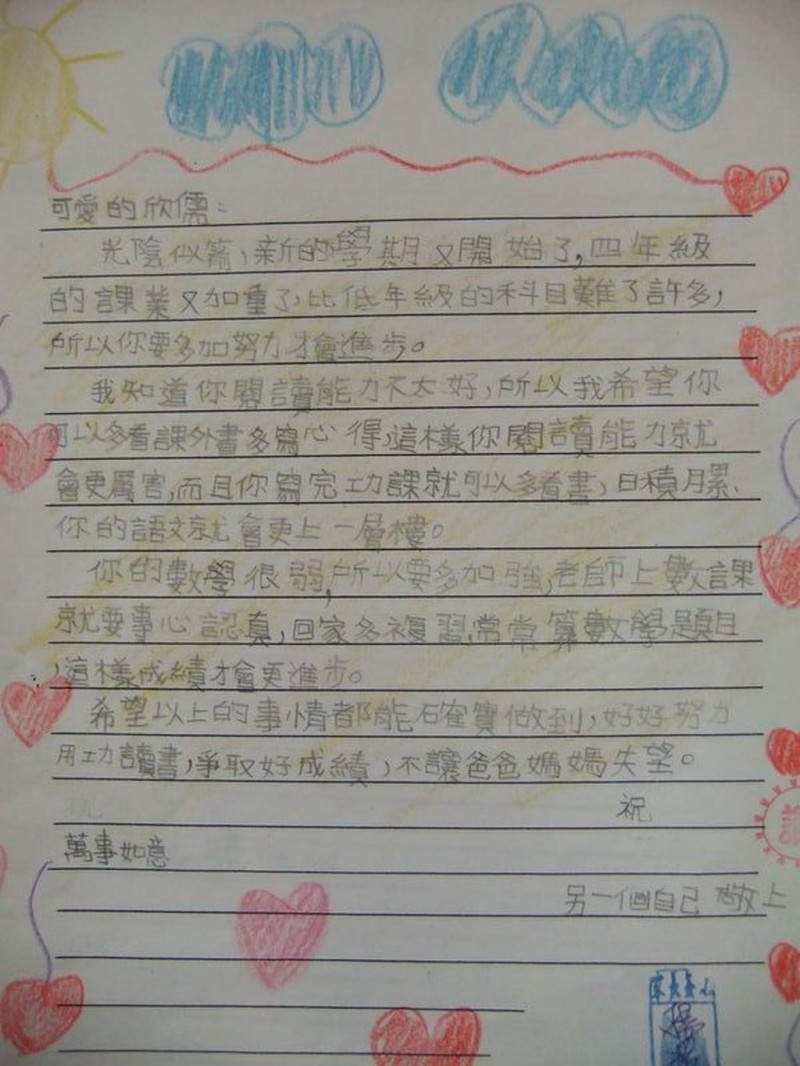 可愛的欣儒：
光陰似箭，新的學期又開始了，四年級
的課業又加重了，比低年級的科目難了許多，
所以你要多加努力才會進步。
我知道你閱讀能力不太好，所以我希望你
可以多看課外書多寫心得，這樣你閱讀能力就
會更厲害，而且你寫完功課就可以多看書，日積月累、
你的語文就會更上一層樓。
你的數學很弱，所以要多加強，老師上數課
就要專心認真，回家多複習，常常算數學題目
，這樣成績才會更進步。
希望以上的事情都能確實做到，好好努力
用功讀書，爭取好成績，不讓爸爸媽媽失望。
祝
萬事如意
另一個自己 敬上
家長簽